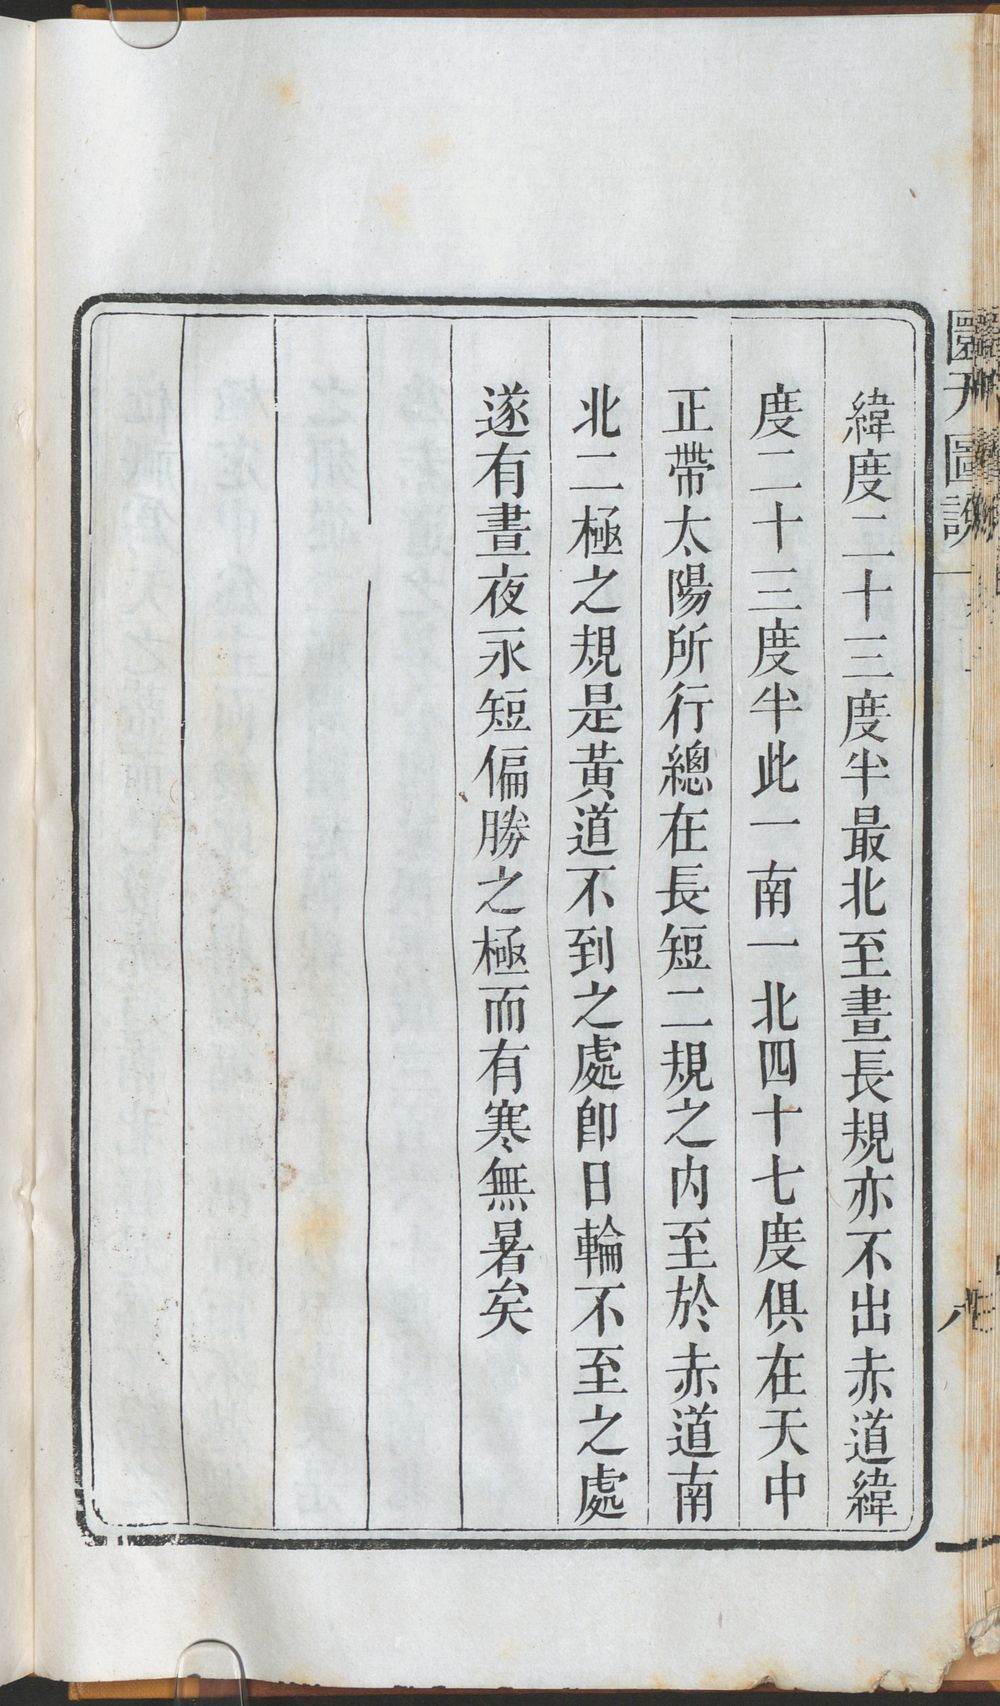 緯度二十三度半最北至晝長規亦不出赤道緯
度二十三度半此一南一北四十七度俱在天中
正帶太陽所行總在長短二規之內至於赤道南
北二極之規是黃道不到之處卽日輪不至之處
遂有晝夜永短偏勝之極而有寒無暑矣
圖說
八